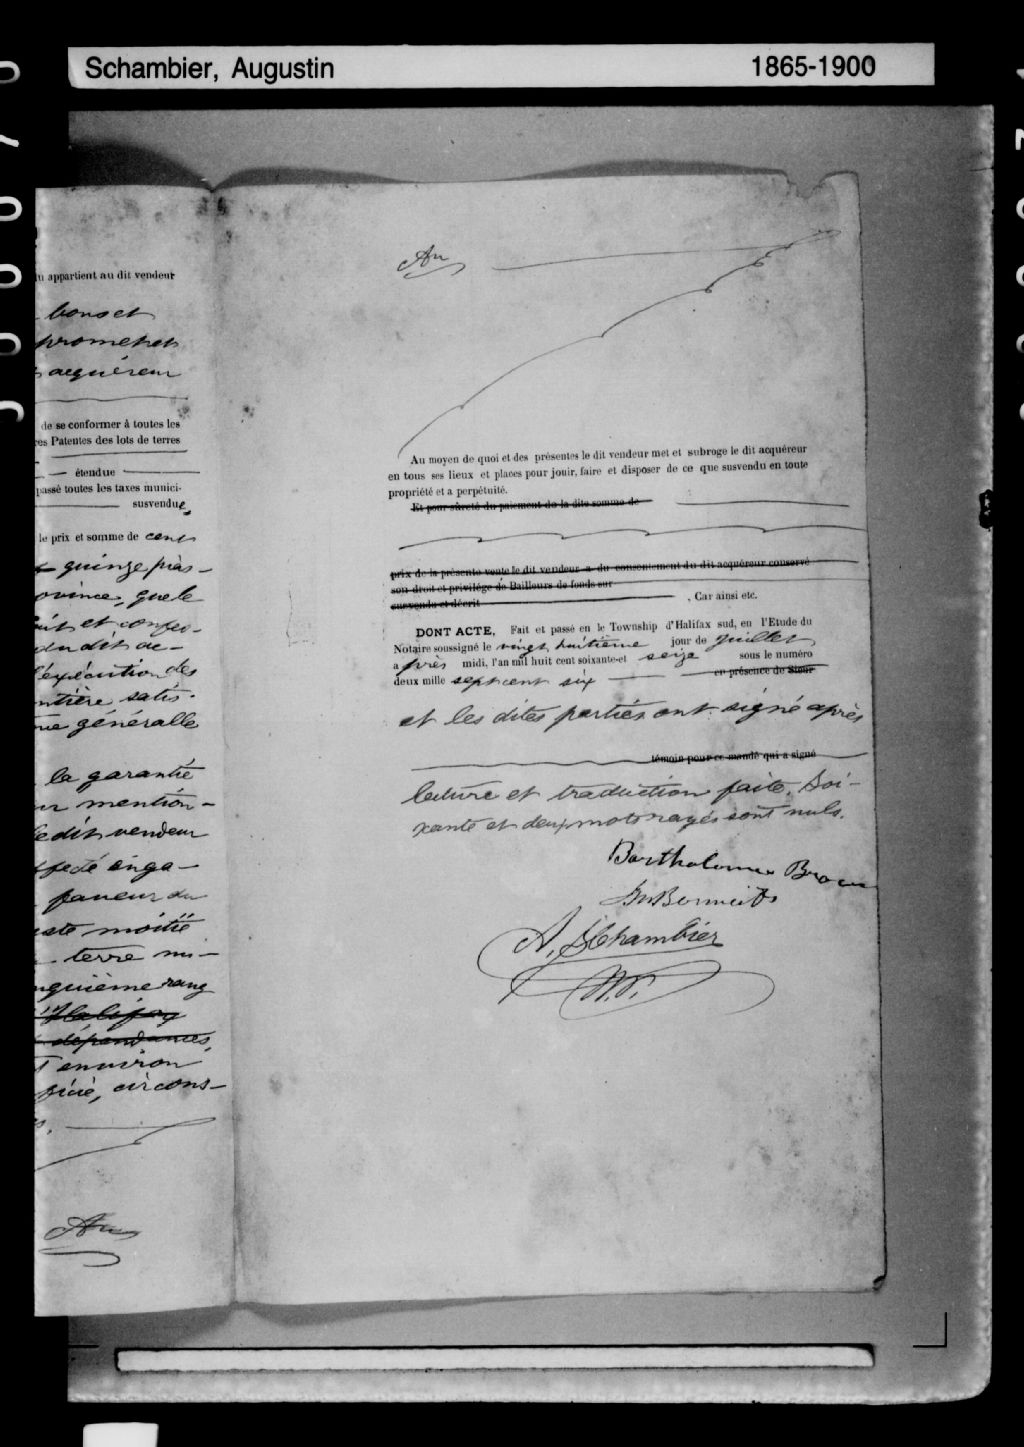 Schambier, Augustin 1865-1900
appartient au dit vendeur
bons et
promettet
acquéreur
de se conformer à toutes les
Patentes des lots de terres
étendue
passé toutes les taxes munici-
susvendue,
le prix et somme de cent
quinze pias-
ovince, que le
et confes-
du dit ac-
l'exécution des
ntière satis-
généralle
la garantie
mention-
ledit vendeur
enga-
faveur du
moitié
terre nu-
nquième rang
d'Halifax
dépendances,
environ
circons-
Au moyen de quoi et des présentes le dit vendeur met et subroge le dit acquéreur
en tous ses lieux et places pour jouir, faire et disposer de ce que susvendu en toute
propriété et a perpétuité.
Et pour sûreté du paiement de la dite somme de
prix de la présente vente le dit vendeur a du consentement du dit acquéreur conservé
son droit et privilége de Bailleurs de fonds sur
susvendu et décrit . Car ainsi etc.
DONT ACTE, Fait et passé en le Township d'Halifax sud, en l'Etude du
Notaire soussigné le vingt huitième jour de Juillet
après midi, l'an mil huit cent soixante-et seize sous le numéro
deux mille sept cent six en présence de Sieur
et les dites parties ont signé après
témoin pour ce mandé qui a signé
lecture et traduction faite. Soi-
xante et deux mots rayés sont nuls.
Bartholomew
A. Schambier
N.P.